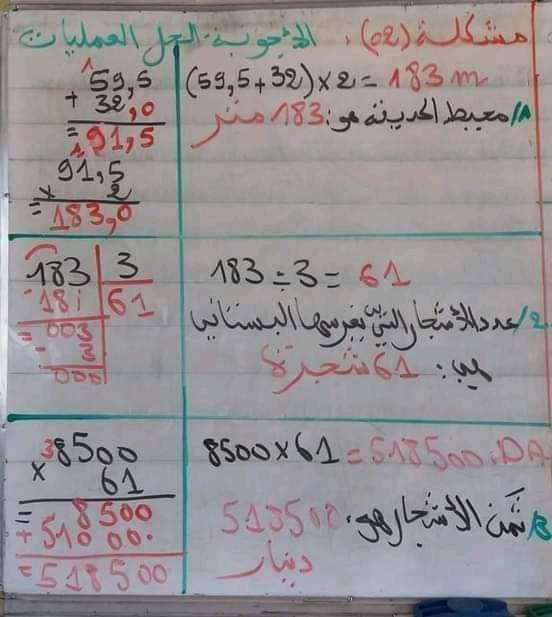 مشكلة (02): الأجوبة الحل العمليات
(59,5+32)×2=183m
1/ معيط الحديقة هو: 183 متر
59,5
+ 32,0
= 91,5
91,5
× 2
= 183,0
183÷3=61
2/ عدد الأشجار التي يغرسها البستاني
هي: 61 شجرة
183 3
- 18 61
= 003
- 3
000
8500×61=518500 DA
3/ ثمن الأشجار هو: 518500
دينار
8500
× 61
= 8500
+ 51000.
= 518500